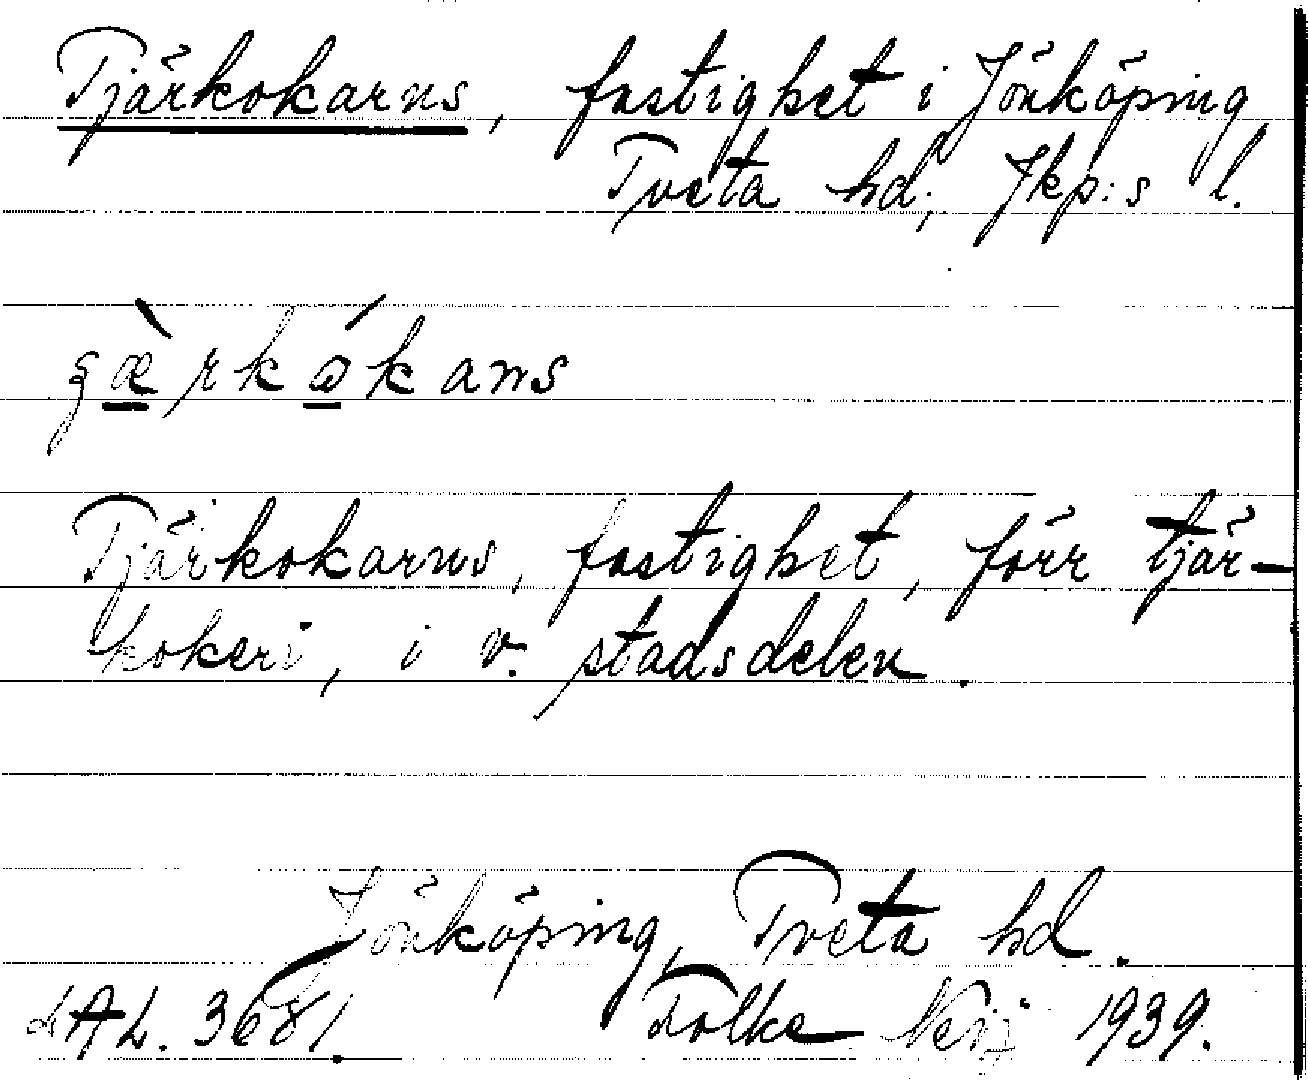 Tjärkokarns, fastighet i Jönköping,
Tveta hd; Jkp:s l.
Tjärkokarns, fastighet, förr tjär-
kokeri, i v. stadsdelen.
Jönköping, Tveta hd.
AL. 3681.
Folke 1939.